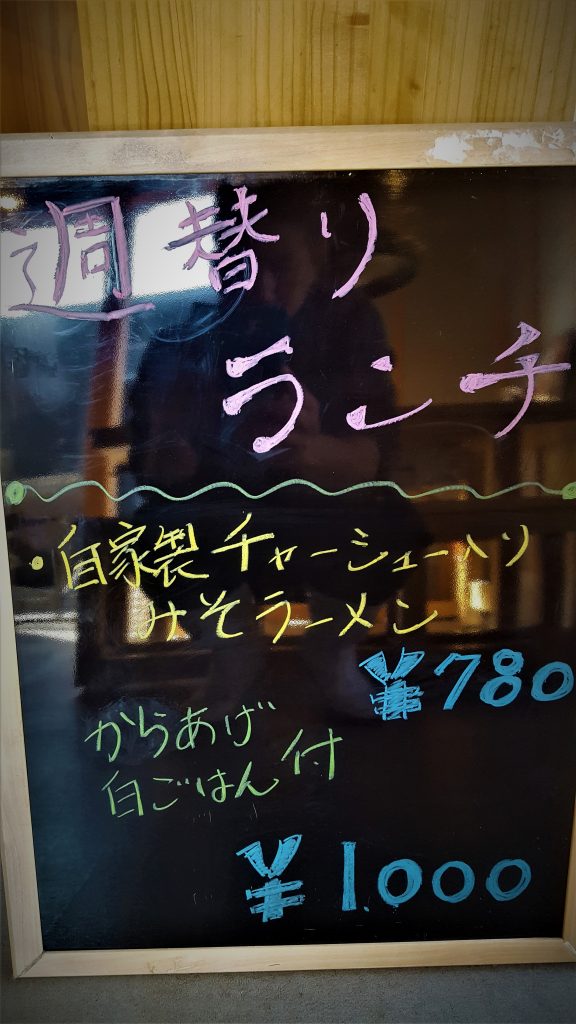 週替り
ランチ
・自家製チャーシュー入り
みそラーメン
¥780
からあげ
白ごはん 付
¥1.000